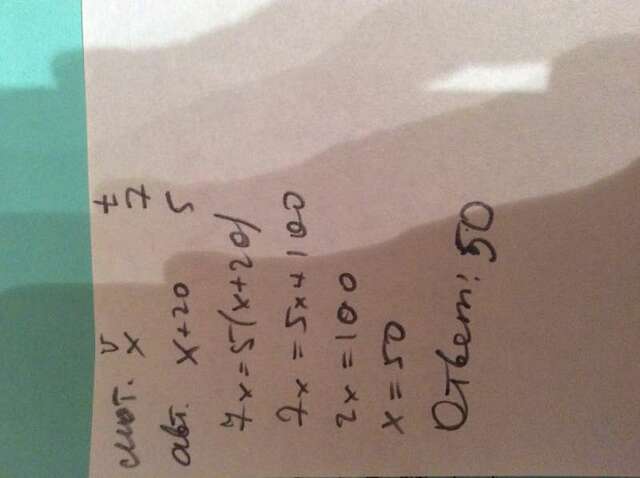 v t
смот. x 7
авт. x+20 5
7x=5(x+20)
7x=5x+100
2x=100
x=50
Ответ: 50